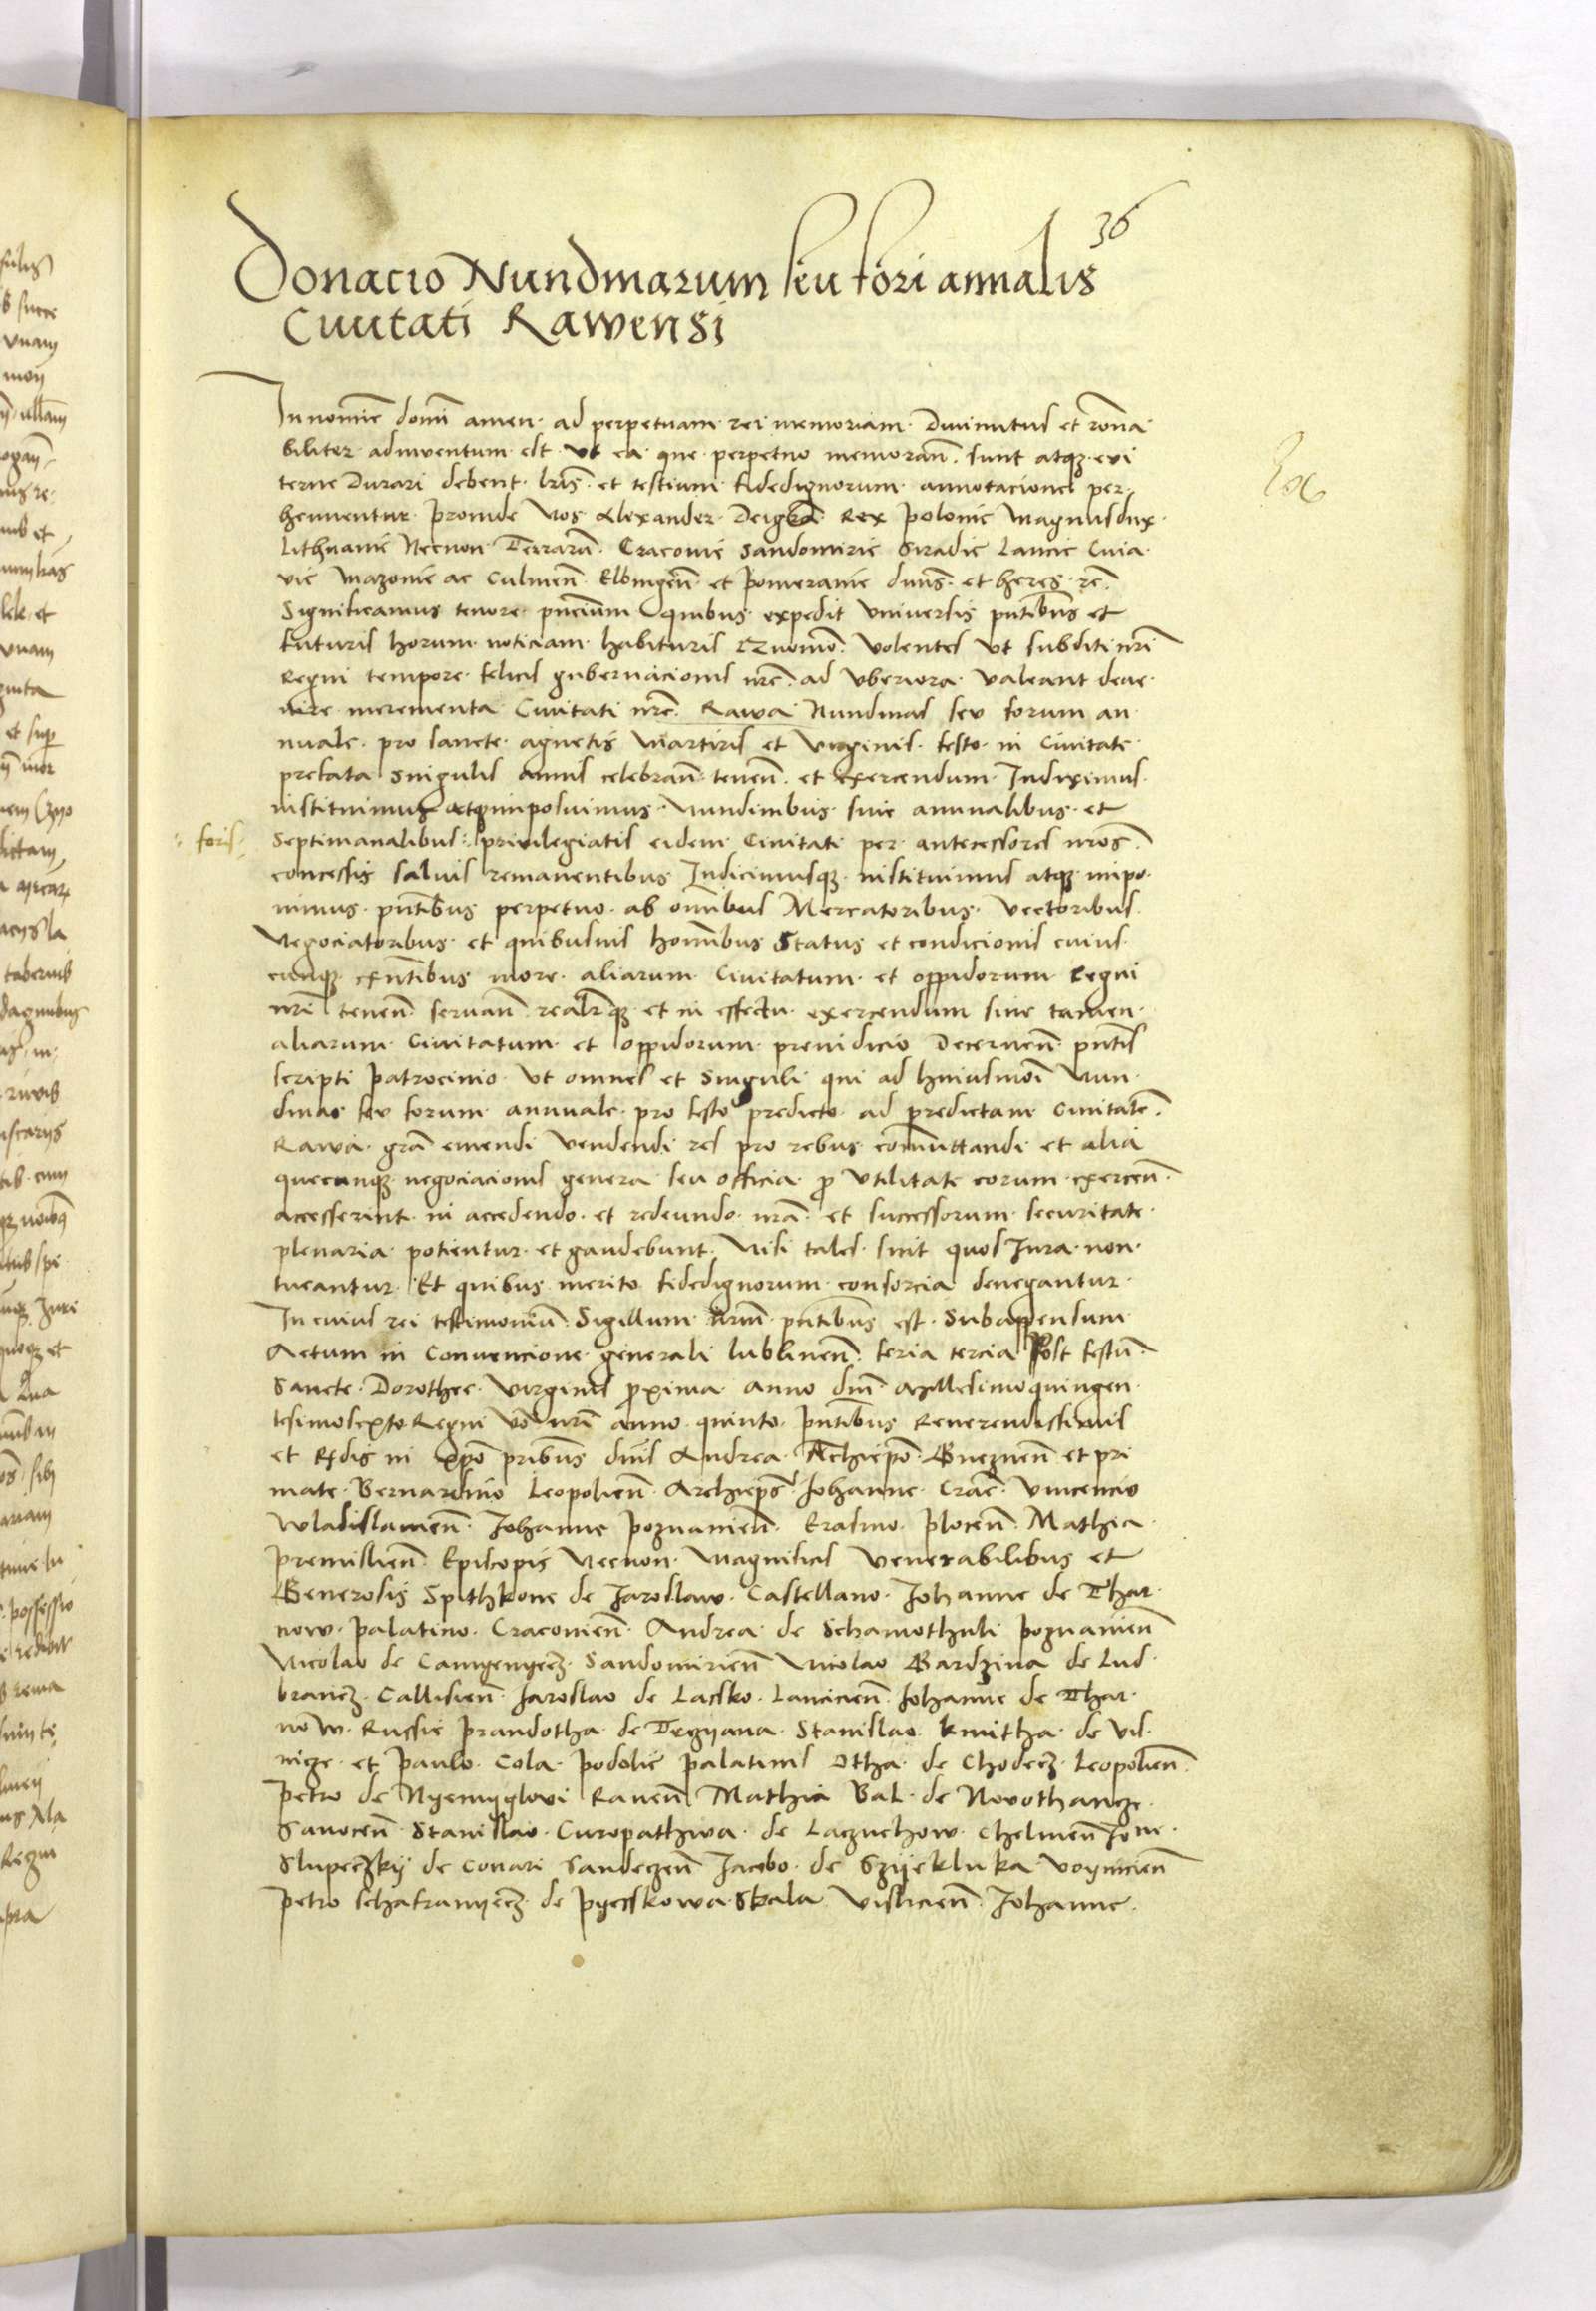 36
Donacio Nundinarum seu fori annalis
Civitati Rawensi
In nomine domi amen. ad perpetuam rei memoriam. Divinitus et rona
biliter adinventum est. Ut ea que perpetuo memoran. sunt atqz evi
terne Durari debent. lris et testium fidedignorum annotacione per
hennentur. Proinde Nos Alexander Dei gra Rex Polonie Magnus dux
Lithuanie Necnon Terrarum. Cracovie Sandomirie Siradie Lancie Cuia
vie Mazovie ac Culmen. Elbingen. et Pomeranie dnus et heres rc.
Significamus tenore pncium Quibus expedit Universis pntibus et
futuris horum noticiam habituris Quomodo. Volentes Ut subditi nri
Regni tempore felicis gubernacionis nre. ad Uberiora valeant deve
nire incrementa Civitati nre. Rawa Nundinas seu forum an
nuale pro sancte Agnetis Martiris et virginis festo in Civitate
prefata singulis annis celebran. tenen. et exercendum Indiximus
instituimus atqz imposuimus. Nundinibus sive annualibus et
foris
Septimanalibus privilegiatis eidem Civitati per antecessores nros
concessis salvis remanentibus Indicimusqz instituimus atqz inpo
nimus pntibus perpetuo ab omnibus Mercatoribus Vectoribus
Negociatoribus et quibusvis hominibus Status et condicionis cuius
cunqz exntibus more aliarum Civitatum et oppidorum Regni
nri tenen. servan. realrqz et in effectu exercendum sine tamen
aliarum Civitatum et oppidorum preiudicio Decernen. pntis
scripti patrocinio. Ut omnes et singuli qui ad huiusmoi Nun
dinas seu forum annuale pro festo predicto ad predictam Civitatem
Rawa gra emendi vendendi res pro rebus comuttandi et alia
quecunqz negociacionis genera seu officia p Utilitate eorum exercen.
accesserint in accedendo et redeundo nra et successorum securitate
plenaria potientur et gaudebunt. Nisi tales sint quos Jura non
tueantur. Et quibus merito fidedignorum consorcia denegantur.
In cuius rei testimonium Sigillum nrum pntibus est Subappensum
Actum in Convencione generali lublinen. feria tercia Post festum
Sancte Dorothee virginis pxima Anno dni Millesimoquingen
tesimosexto Regni vo nri anno quinto. Pntibus Reverendissimis
et Rdis in xpo pribus dnis Andrea Archiepo Gneznen et pri
mate. Bernardino Leopolien Archiepis Johanne Crac. Vincencio
Wladislavien. Johanne Poznanien. Erasmo Plocen. Mathia
Premislien. Episcopis Necnon Magnificis venerabilibus et
Generosis Spithkone de Jaroslaw Castellano. Johanne de Thar
now palatino Cracovien. Andrea de Schamothuli Poznanien
Nicolao de Camyenyecz Sandomirien Nicolao Gardzina de Lud
brancz Callisien. Jaroslao de Lacsko Lancicien Johanne de Thar
now Russie Prandotha de Trzyana Stanislao Kmitha de Vis
nicze et Paulo Cola Podolie Palatinis Otha de Chodecz Leopolien.
Petro de Nyemyglovi Raven. Mathia Bal de Novothancze
Sanocen Stanislao Curopathwa de Laczuchow Chelmen Jone
Slupeczkij de Conari Sandeczen Jacobo de Szyekluka Voynicien
Petro Schafranyecz de Pyesskowa Skala Vislicien Johanne